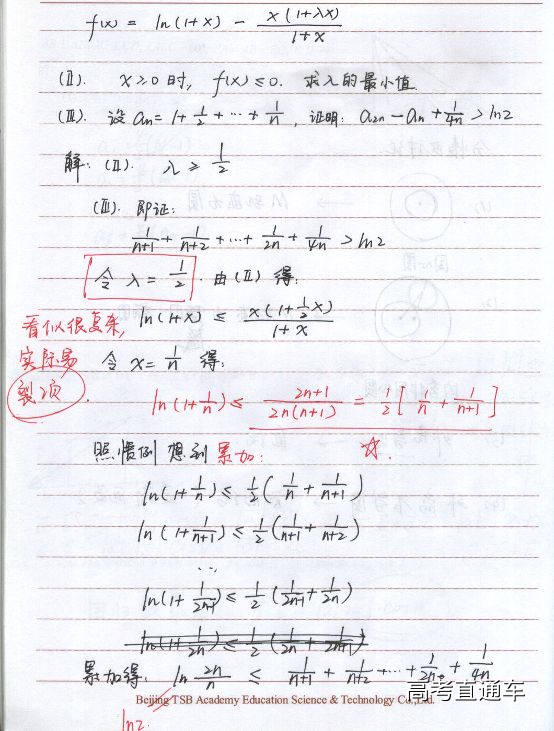 f(x) = ln(1+x) - \frac{x(1+λx)}{1+x}
(Ⅱ). x≥0时, f(x)≤0. 求λ的最小值
(Ⅲ). 设 an=1+\frac{1}{2}+…+\frac{1}{n}, 证明: a2n-an+\frac{1}{4n}>ln2
解: (Ⅱ). λ≥\frac{1}{2}
(Ⅲ). 即证:
\frac{1}{n+1}+\frac{1}{n+2}+…+\frac{1}{2n}+\frac{1}{4n}>ln2
令 λ=\frac{1}{2}. 由(Ⅱ)得:
看似很复杂,
ln(1+x) ≤ \frac{x(1+\frac{1}{2}x)}{1+x}
实际易
令 x=\frac{1}{n} 得:
裂项.
ln(1+\frac{1}{n}) ≤ \frac{2n+1}{2n(n+1)} = \frac{1}{2}[\frac{1}{n}+\frac{1}{n+1}]
照惯例 想到累加: ☆.
ln(1+\frac{1}{n}) ≤ \frac{1}{2}(\frac{1}{n}+\frac{1}{n+1})
ln(1+\frac{1}{n+1}) ≤ \frac{1}{2}(\frac{1}{n+1}+\frac{1}{n+2})
…
ln(1+\frac{1}{2n-1}) ≤ \frac{1}{2}(\frac{1}{2n-1}+\frac{1}{2n})
ln(1+\frac{1}{2n}) ≤ \frac{1}{2}(\frac{1}{2n}+\frac{1}{2n+1})
累加得: ln\frac{2n}{n} ≤ \frac{1}{n+1}+\frac{1}{n+2}+…+\frac{1}{2n-1}+\frac{1}{4n}
Beijing TSB Academy Education Science & Technology Co.,Ltd.
高考直通车
ln2.